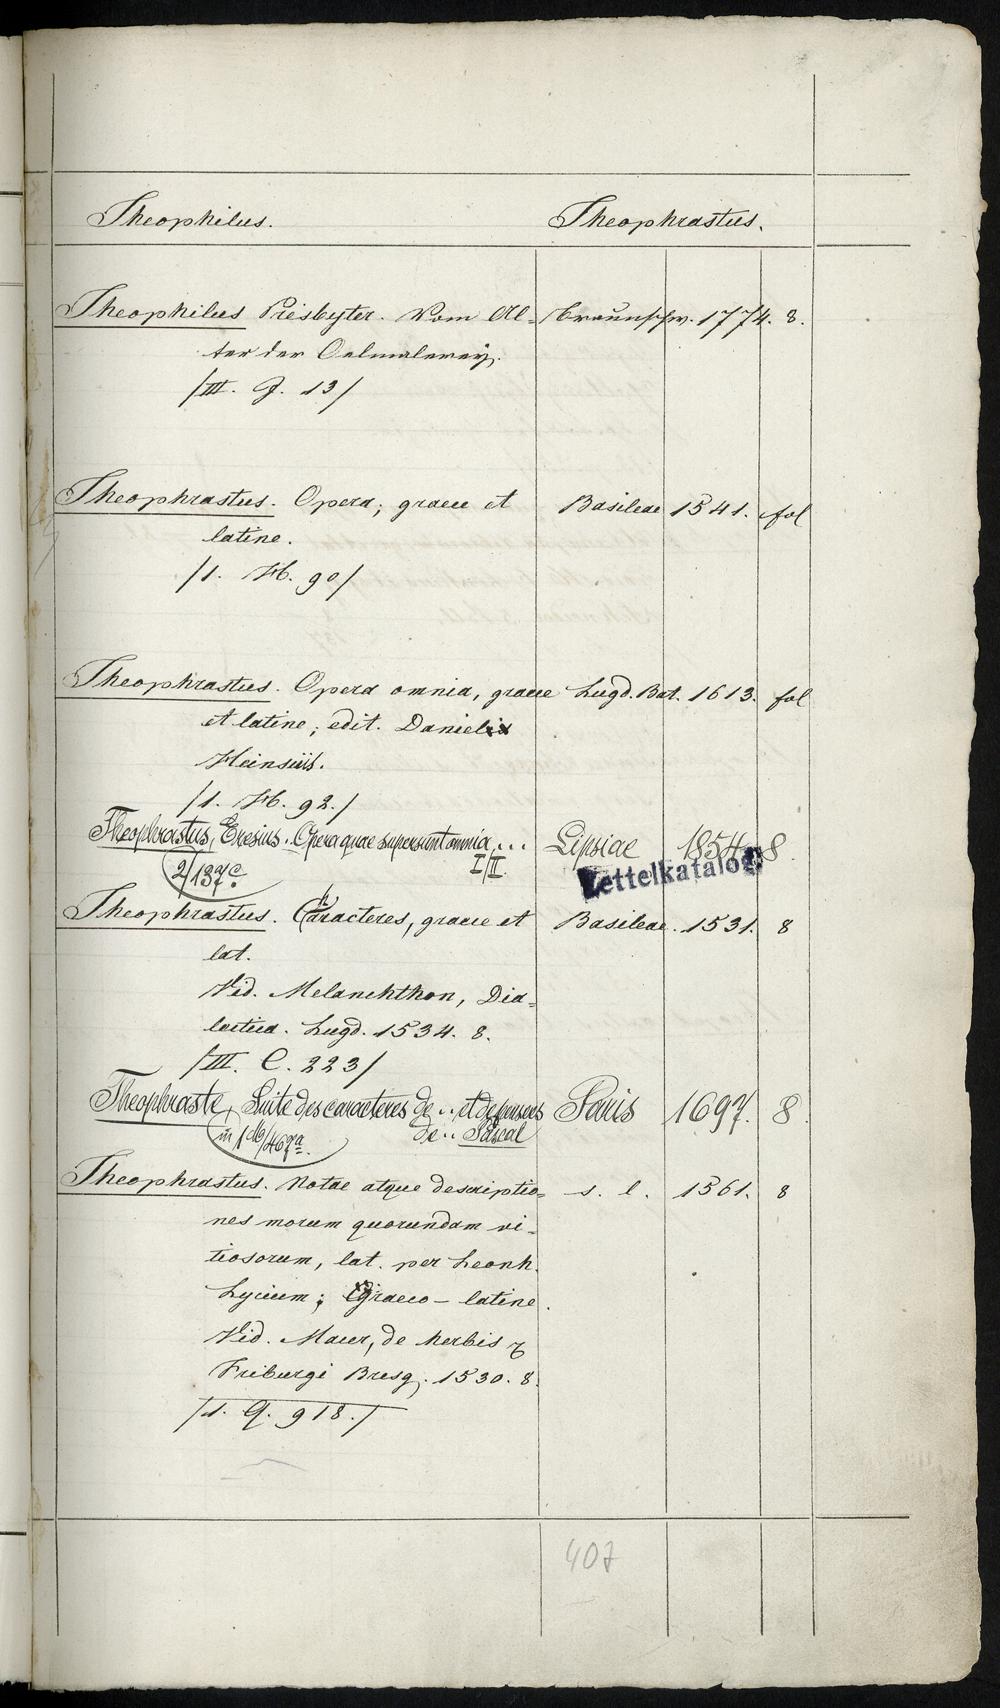 Theophilus. Theophrastus.
Theophilus Presbyter. Vom Al- Braunschw. 1774. 8.
ter der Oelmalerey.
/III. J. 13/
Theophrastus. Opera; graece et Basileae 1541. fol
latine.
/1. H. 90/
Theophrastus. Opera omnia, graece Lugd. Bat. 1613. fol
et latine; edit. Daniel
Heinsius.
/1. H. 92./
Theophrastus, Eresius. Opera quae supersunt omnia, ... Lipsiae 1854 8.
I/II.
2/137c. Zettelkatalog
Theophrastus. Characteres, graece et Basileae. 1531. 8
lat.
Vid. Melanchthon, Dia-
lectica. Lugd. 1534. 8.
/III. C. 223/
Theophraste, Suite des caracteres de .. et de pensees Paris 1697. 8.
in 1 db/467a. de .. Pascal
Theophrastus. Notae atque descriptio- s. l. 1561. 8
nes morum quorundam vi-
tiosorum, lat. per Leonh.
Lycium; graeco-latine.
Vid. Macer, de herbis
Friburgi Bresg. 1530. 8.
/1. Q. 918./
407